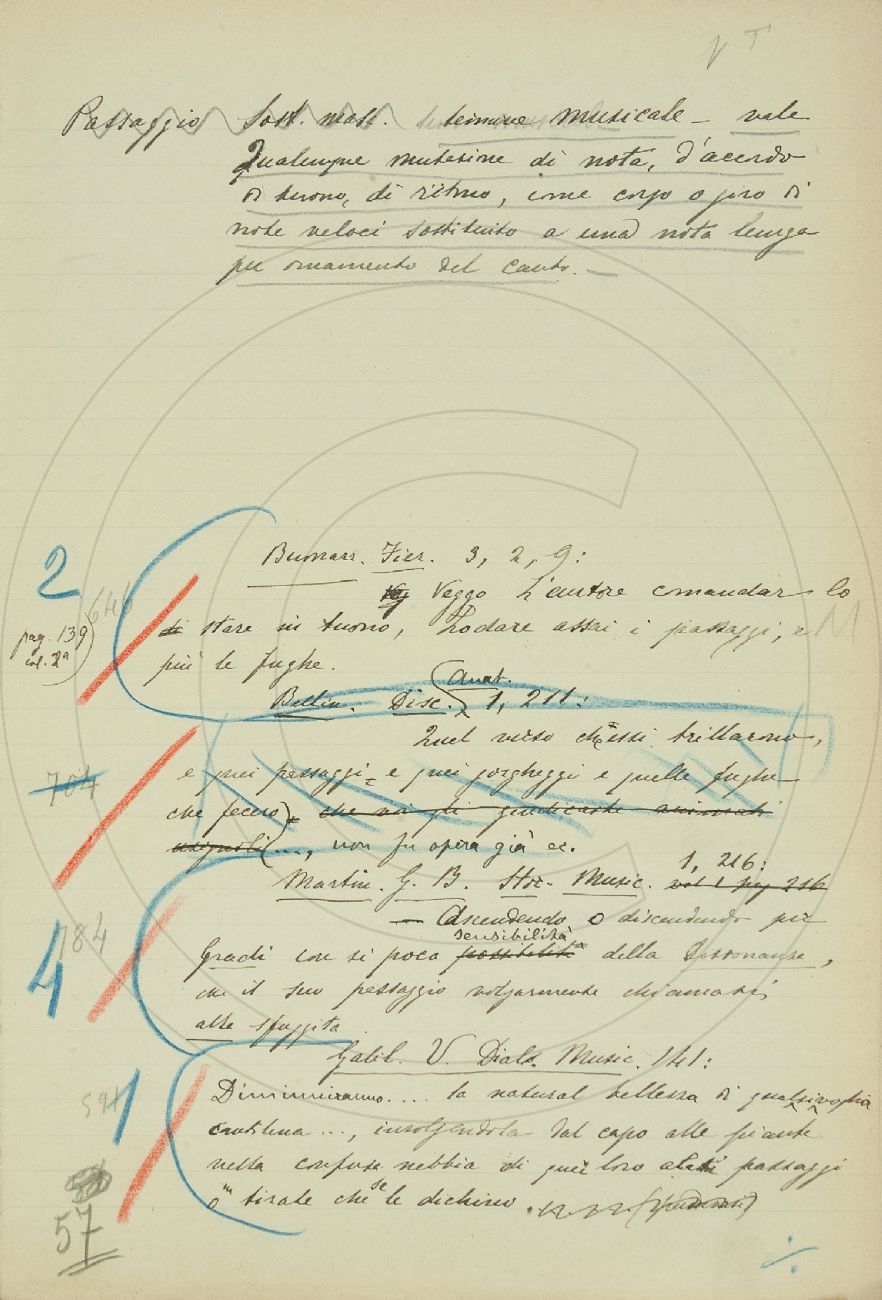 V T
Passaggio Sost. masc. termine musicale – vale
Qualunque mutazione di nota, d'accordo
di tuono, di ritmo, come corpo o giro di
note veloci sostituito a una nota lunga
per ornamento del canto. –
2
Buonarr. Fier. 3, 2, 9:
646
Veggo l'autore comandar lo
pag. 139
col. 2ª
di stare in tuono, Lodare assai i passaggi, e
più le fughe.
Anat.
Bellin. Disc. 1, 211:
Quel verso ch'essi trillarono,
704
e quei passaggi e quei gorgheggi e quelle fughe
che fecero che voi gli giudicaste
usignoli ..., non fu opera già ec.
1, 216:
Martin. G. B. Stor. Music. vol 1 pag 216
4
784
– Ascendendo o discendendo per
sensibilità
Gradi con sì poca possibilità della Dissonanza,
che il suo passaggio volgarmente chiamasi
alla sfuggita.
Galil. V. Dial. Music. 141:
1
591
Diminuiranno.... la natural bellezza di qualsivoglia
cantilena ..., involgendola dal capo alle piante
nella confusa nebbia di quei loro passaggi
o tirate che se le dichino.
57